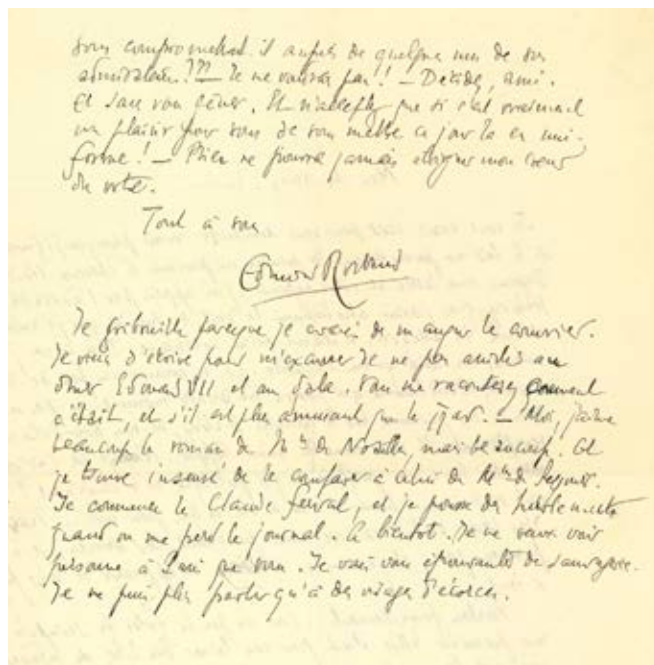 vous compromettrait-il auprès de quelques uns de vos
admirateurs ??? — Je ne voudrais pas !! — Décidez, ami.
Et sans vous gêner. Et n'acceptez que si c'est vraiment
un plaisir pour vous de vous mettre ce jour là en uni-
forme ! — Rien ne pourra jamais éloigner mon coeur
du votre.
Tout à vous
Edmond Rostand
Je gribouille parceque je crains de manquer le courrier.
Je viens d'écrire pour m'excuser de ne pas assister au
diner Edouard VII et au Gala. Vous me raconterez comment
c'était, et s'il est plus amusant que le . — Moi, j'aime
beaucoup le roman de Mme de Noailles, mais beaucoup. Et
je trouve insensé de le comparer à celui de Mme de Régnier.
Je commence le Claude Ferval, et je pousse des hurlements
quand on me perd le journal. A bientôt. Je ne veux voir
personne à Paris que vous. Je vais vous épouvanter de sauvagerie.
Je ne puis plus parler qu'à des visages d'écorces.